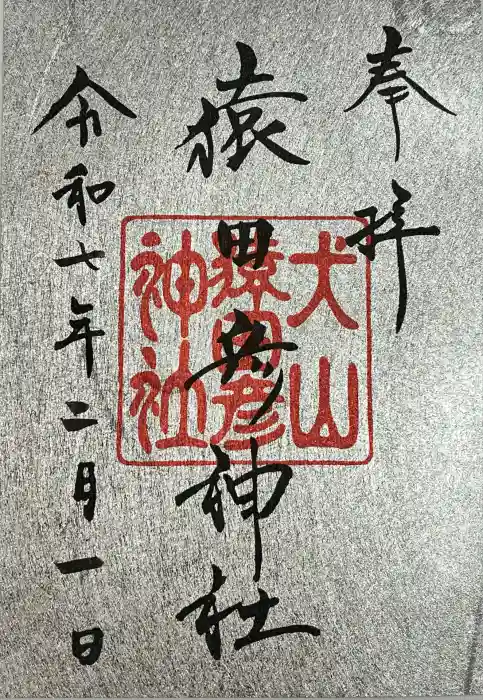 奉拝
猿田彦神社
犬山
猿田彦
神社
令和七年二月一日